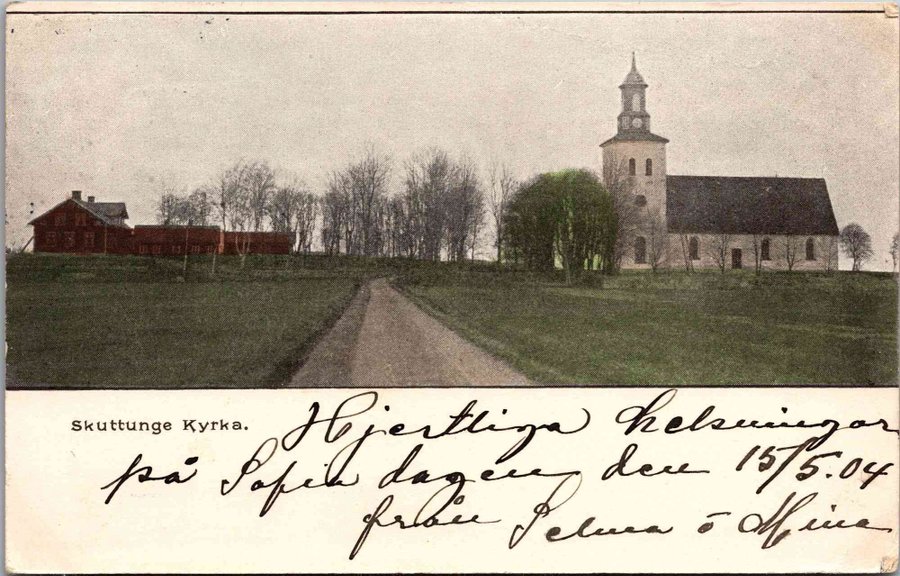 Skuttunge Kyrka.
Hjertliga helsningar
på Sofia dagen den 15/5.04
från Selma ö Mina